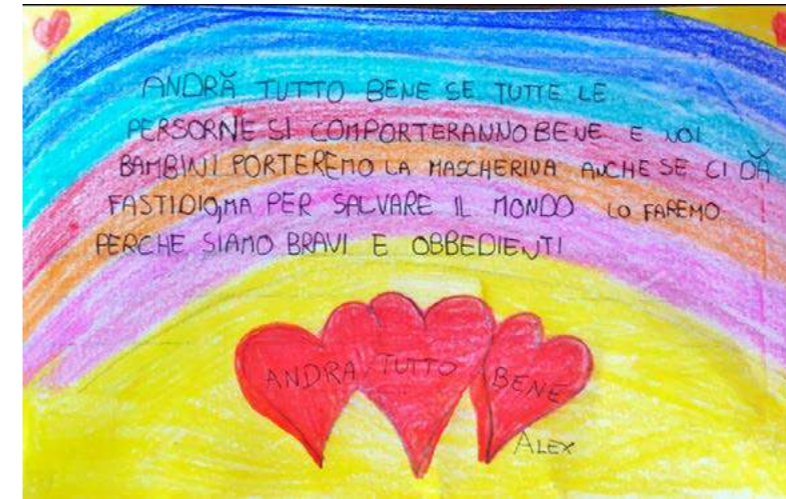 ANDRĂ TUTTO BENE SE TUTTE LE
PERSORNE SI COMPORTERANNO BENE E NOI
BAMBINI PORTEREMO LA MASCHERINA ANCHE SE CI DĂ
FASTIDIO, MA PER SALVARE IL MONDO LO FAREMO
PERCHE SIAMO BRAVI E OBBEDIENTI
ANDRA TUTTO BENE
ALEX